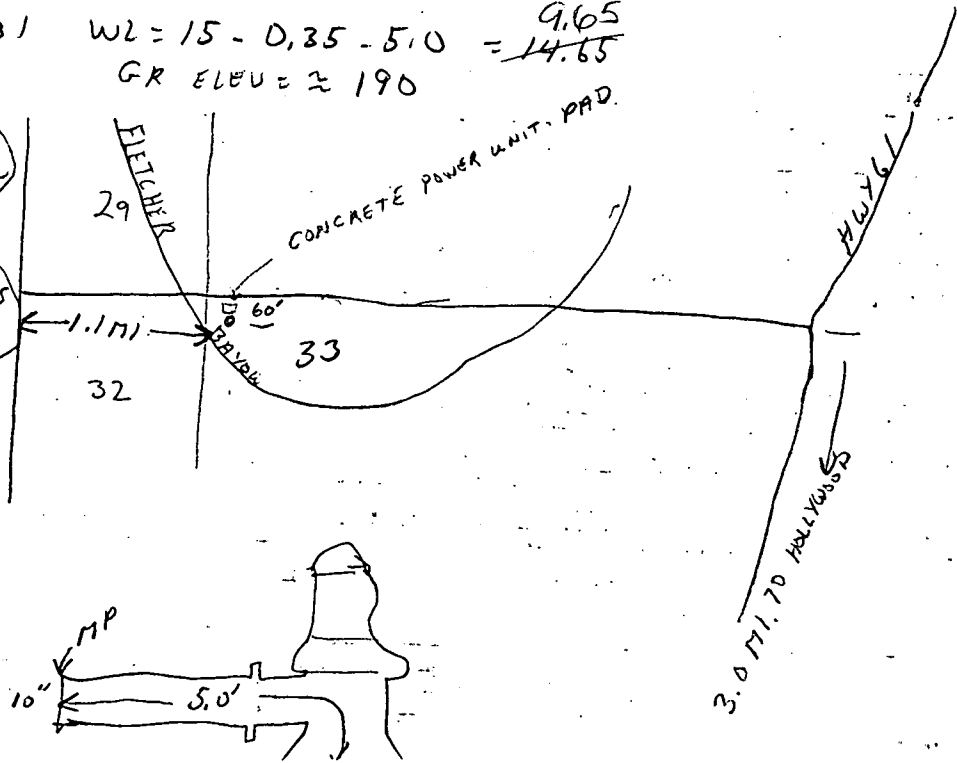 WL = 15 - 0.35 - 5.0 = 9.65
14.65
GR ELEV = ≈ 190
FLETCHER
29
CONCRETE POWER UNIT. PAD.
HWY 61
60'
1.1 MI
BAYOU
33
32
3.0 MI. TO HOLLYWOOD
MP
10"
5.0'